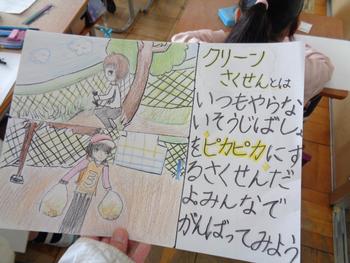 クリーン
さくせんとは
いつもやらな
いそうじばしょ
をピカピカにす
るさくせんだ
よみんなで
がんばってみよう
5